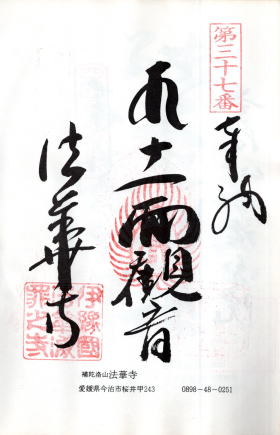 第三十七番
奉納
十一面観音
法華寺
補陀洛山法華寺
愛媛県今治市桜井甲243 0898-48-0251